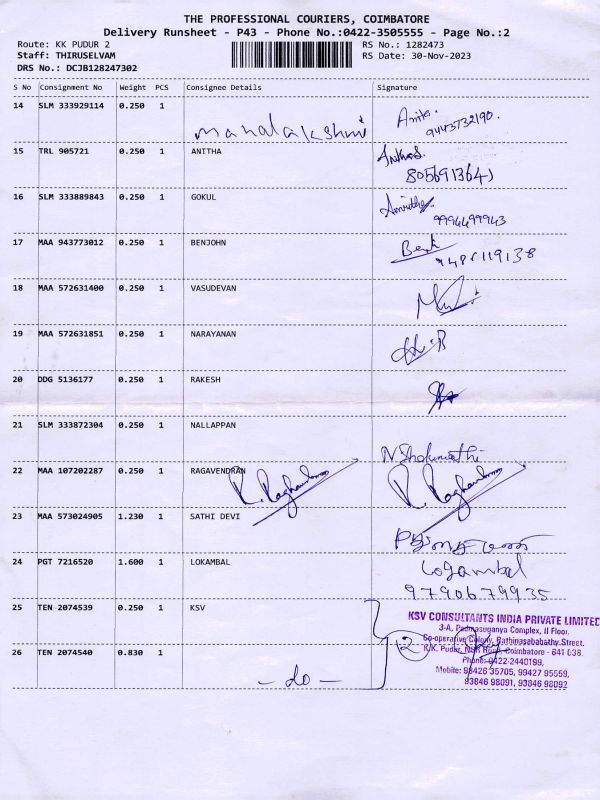 THE PROFESSIONAL COURIERS, COIMBATORE
Delivery Runsheet - P43 - Phone No.:0422-3505555 - Page No.:2
Route: KK PUDUR 2 RS No.: 1282473
Staff: THIRUSELVAM RS Date: 30-Nov-2023
DRS No.: DCJB128247302
S No Consignment No Weight PCS Consignee Details Signature
14 SLM 333929114 0.250 1 mahalakshmi Anitha. 9443732190.
15 TRL 905721 0.250 1 ANITHA
16 SLM 333889843 0.250 1 GOKUL 9994499943
17 MAA 943773012 0.250 1 BENJOHN
18 MAA 572631400 0.250 1 VASUDEVAN
19 MAA 572631851 0.250 1 NARAYANAN
20 DDG 5136177 0.250 1 RAKESH
21 SLM 333872304 0.250 1 NALLAPPAN
22 MAA 107202287 0.250 1 RAGAVENDRAN
23 MAA 573024905 1.230 1 SATHI DEVI
24 PGT 7216520 1.600 1 LOKAMBAL Logambal
9790679935
25 TEN 2074539 0.250 1 KSV
26 TEN 2074540 0.830 1 - do -
2
KSV CONSULTANTS INDIA PRIVATE LIMITED
3-A, Padmasuganya Complex, II Floor,
Co-operative Colony, Rathinasababathy Street,
K.K. Pudur, NSR Road, Coimbatore - 641 038.
Phone: 0422-2440199,
Mobile: 98426 35705, 99427 95559,
93846 98091, 93846 98092